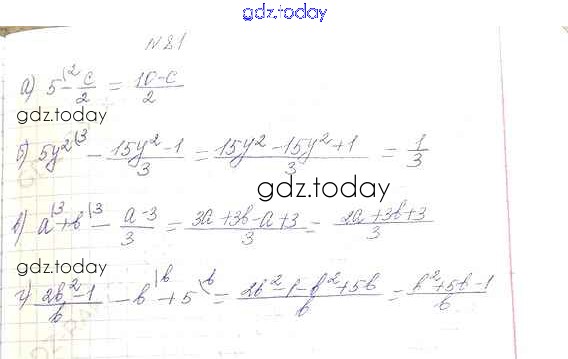 gdz.today
N 81
а) 5 - c/2 = 10-c/2
gdz.today
б) 5y² - 15y²-1/3 = 15y²-15y²+1/3 = 1/3
gdz.today
в) a + b - a-3/3 = 3a+3b-a+3/3 = 2a+3b+3/3
gdz.today
г) 2b²-1/b - b + 5 = 2b²-1-b²+5b/b = b²+5b-1/b